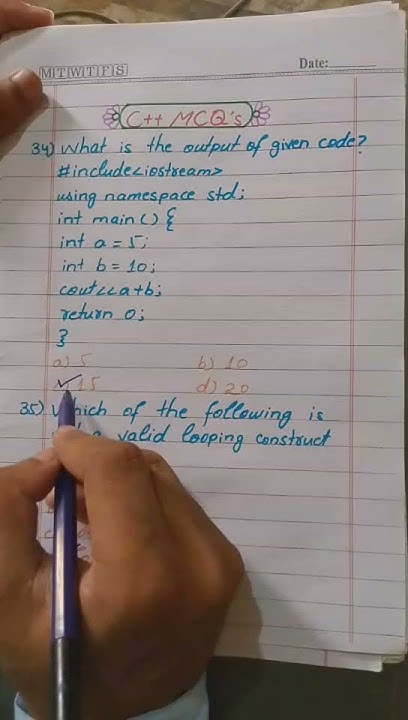 M T W T F S
Date:
C++ MCQ's
34) What is the output of given code?
#include<iostream>
using namespace std;
int main() {
int a = 5;
int b = 10;
cout<<a+b;
return 0;
}
a) 5 b) 10
15 d) 20
35) Which of the following is
a valid looping construct